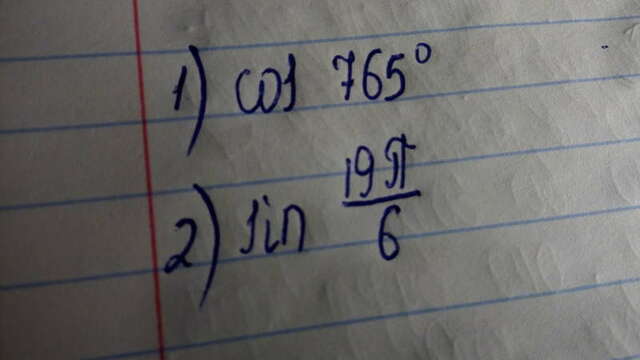 1) cos 765°
2) sin 19π/6